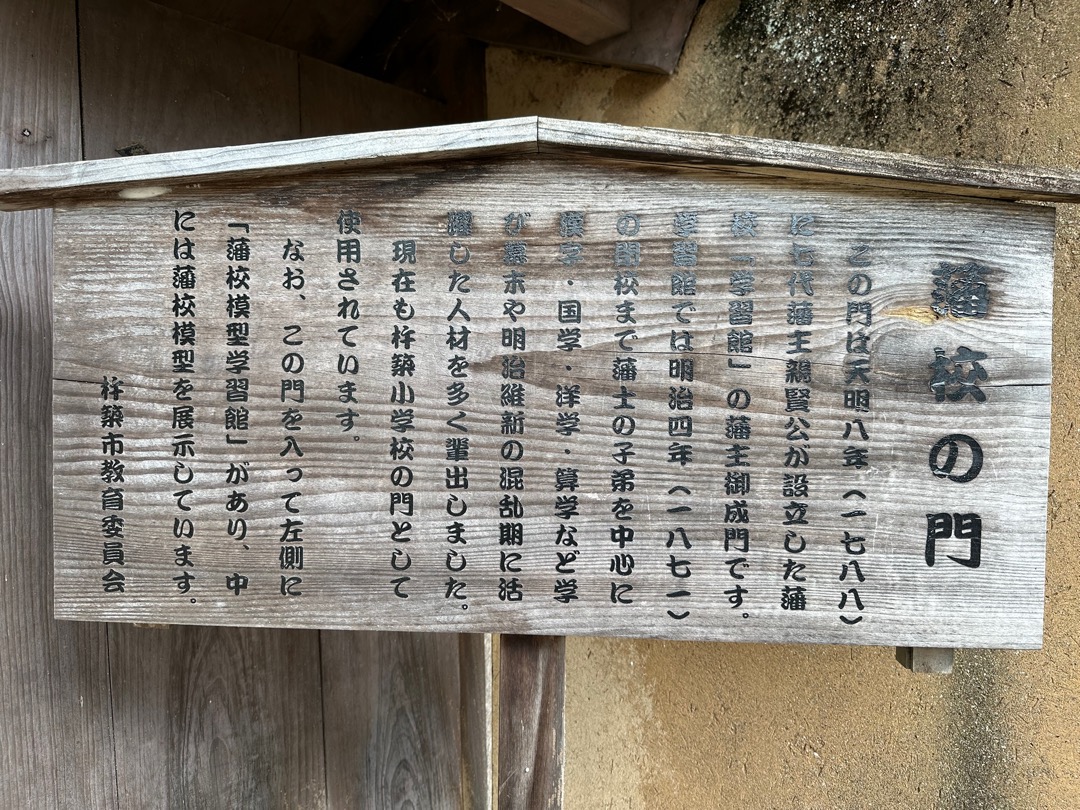 藩校の門
この門は天明八年(一七八八)
に七代藩主親賢公が設立した藩
校「学習館」の藩主御成門です。
学習館では明治四年(一八七一)
の閉校まで藩士の子弟を中心に
漢学・国学・洋学・算学など学
が幕末や明治維新の混乱期に活
躍した人材を多く輩出しました。
現在も杵築小学校の門として
使用されています。
なお、この門を入って左側に
「藩校模型学習館」があり、中
には藩校模型を展示しています。
杵築市教育委員会